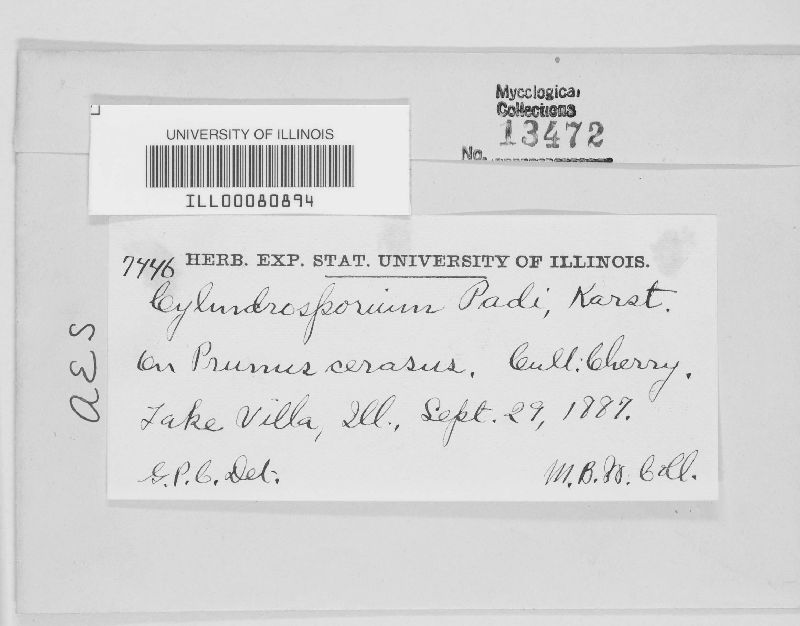 Mycological
Collections
No. 13472
UNIVERSITY OF ILLINOIS
ILL00080894
7446 HERB. EXP. STAT. UNIVERSITY OF ILLINOIS.
Cylindrosporium Padi, Karst.
On Prunus cerasus. Cult. Cherry.
Lake Villa, Ill., Sept. 29, 1887.
G.P.C. Det. M.B.W. Coll.
AES